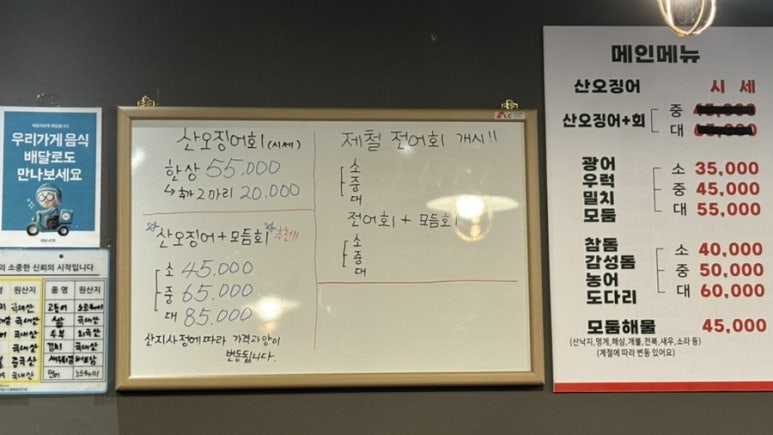 우리가게 음식
배달로도
만나보세요
의 소중한 신뢰의 시작입니다
원산지 품명 원산지
국내산 고등어 노르웨이
국내산 쌀 국내산
국내산 두부 외국산
국내산 김치 국내산
중국산
국내산
산오징어회(시세)
한상 55,000
↳ 추가 2마리 20,000
☆산오징어+모듬회☆ 추천!!
소 45,000
중 65,000
대 85,000
산지사정에따라 가격과양이
변동됩니다.
제철 전어회 개시!!
소
중
대
전어회 + 모듬회
소
중
대
메인메뉴
산오징어 시 세
산오징어+회 중
대
광어
우럭
밀치
모둠
소 35,000
중 45,000
대 55,000
참돔
감성돔
농어
도다리
소 40,000
중 50,000
대 60,000
모둠해물 45,000
(산낙지,멍게,해삼,개불,전복,새우,소라 등)
(계절에 따라 변동 있어요)